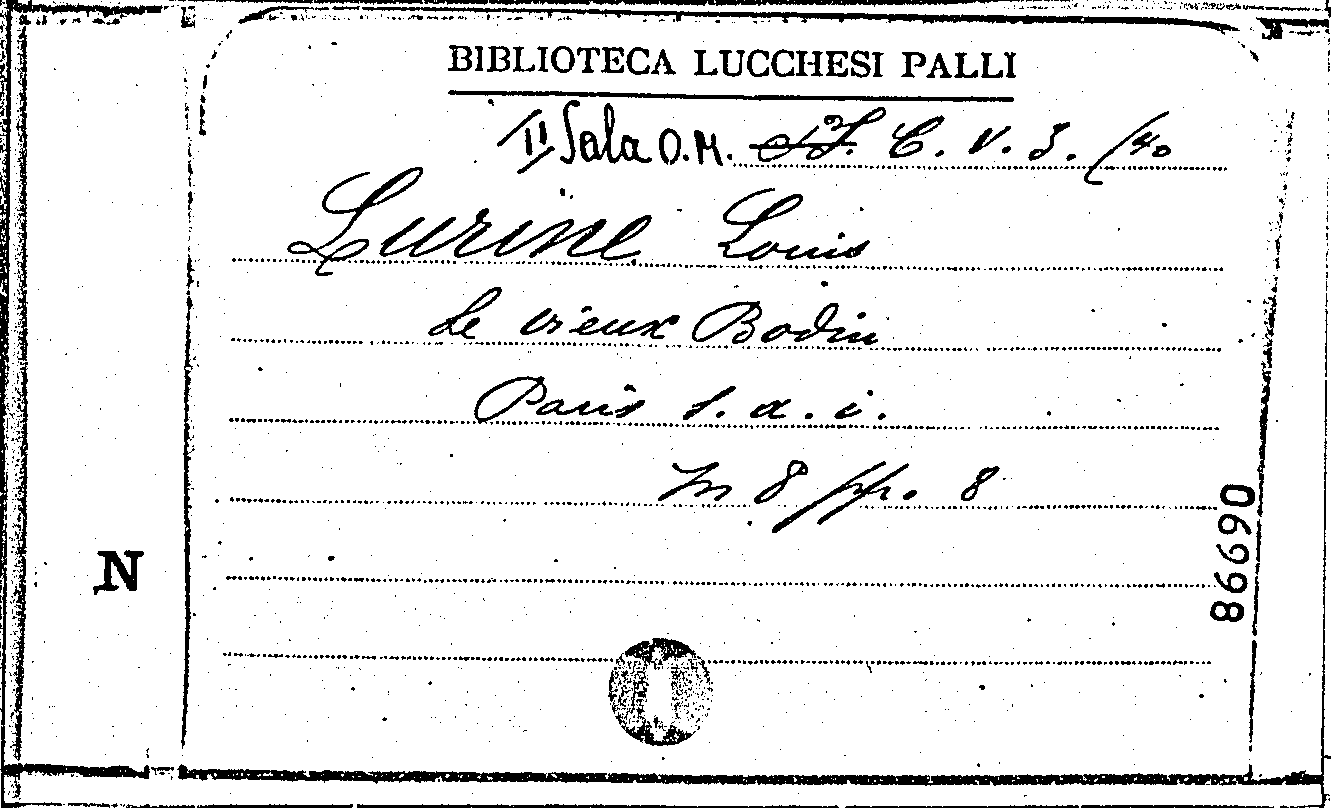 BIBLIOTECA LUCCHESI PALLI
II Sala O.M. C. V. 3. (40
Lurine Louis
Le vieux Bodin
Paris s. a. i.
In 8 pp. 8
86690
N